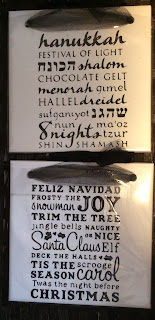 hanukkah
FESTIVAL OF LIGHT
חנוכה shalom
CHOCOLATE GELT
menorah gimel
HALLEL dreidel
sufganiyot שהגנ
8 nun ma'oz
nights tzur
SHIN SHAMASH
FELIZ NAVIDAD
FROSTY THE
snowman JOY
TRIM THE TREE
jingle bells NAUGHTY
OR NICE
Santa Claus Elf
DECK THE HALLS
'TIS THE scrooge
SEASON carol
Twas the night before
CHRISTMAS